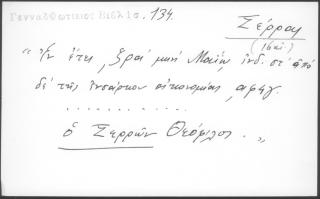 Γενναδ. Κώτικος Βιβλιο. 134.
Σέρραι
(16αι)
"Ἐν ἔτει, ζραί μηνί Μαΐῳ, ἰνδ. στ' ἀπό
δέ τῆς ἐνσάρκου οἰκονομίας, αφξγ.
. . . . . . . . . . .
ὁ Σερρῶν Θεόφιλος. „